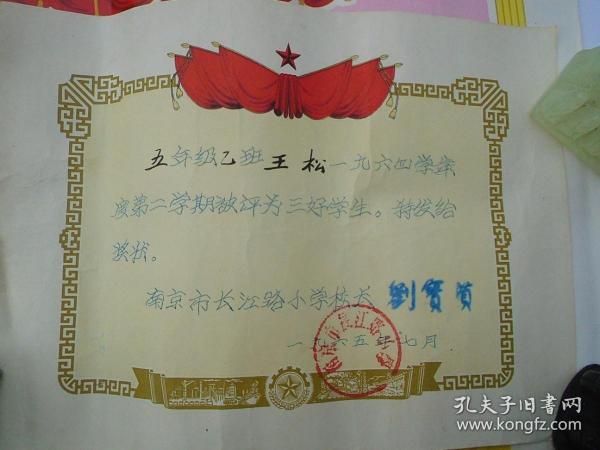 五年级乙班王松一九六四学年
度第二学期被评为三好学生。特发给
奖状。
南京市长江路小学校长 劉寶
一九六五年七月
南京市长江路小学
孔夫子旧书网
www.kongfz.com